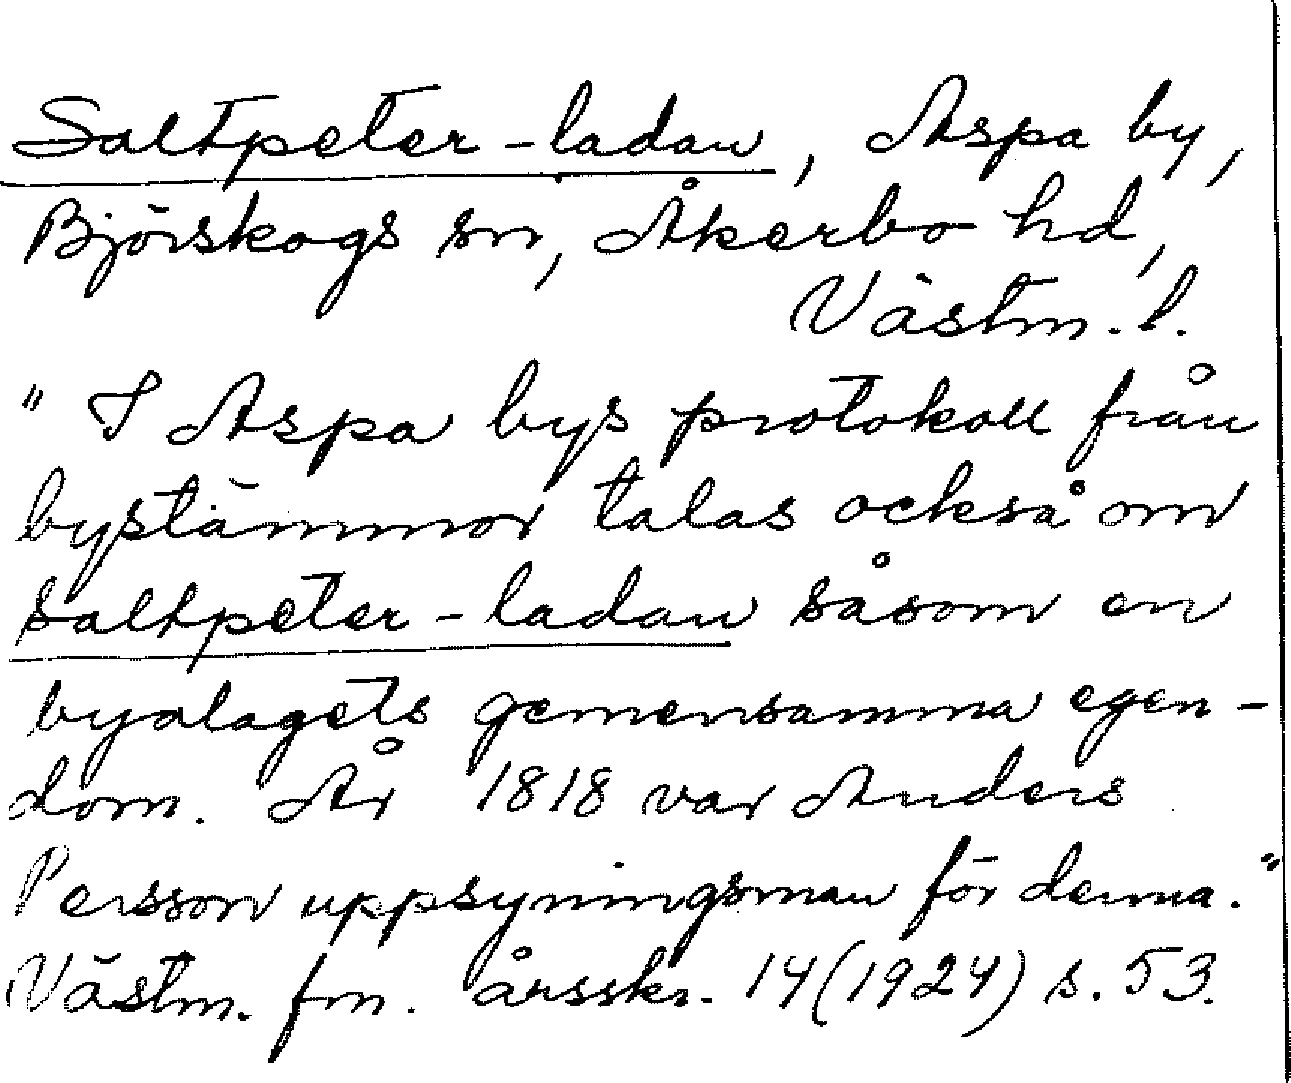 Saltpeter-ladan, Aspa by,
Björskogs sn, Åkerbo hd,
Västm. l.
" I Aspa bys protokoll från
bystämmor talas också om
saltpeter-ladan såsom en
byalagets gemensamma egen-
dom. År 1818 var Anders
Persson uppsyningsman för denna."
Västm. fm. årsskr. 14 (1924) s. 53.